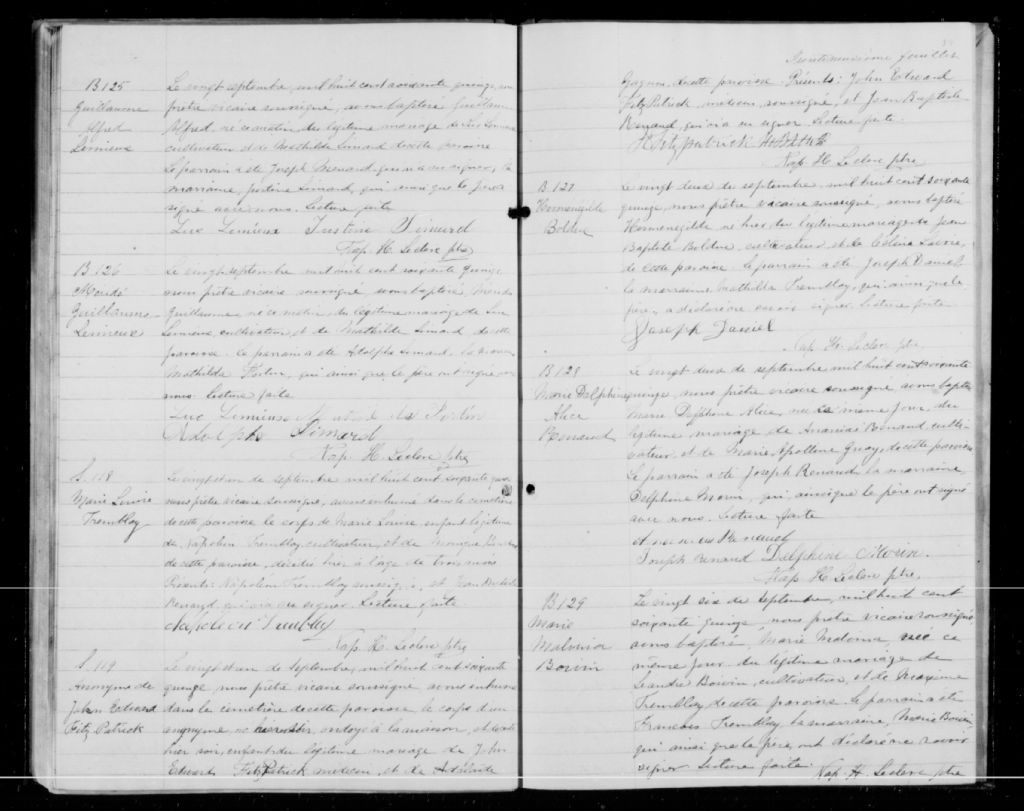 B.125
Guillaume
Alfred
Lemieux
Le vingt septembre, mil huit cent soixante quinze, nous
prêtre vicaire soussigné, avons baptisé Guillaume
Alfred, né ce matin, du légitime mariage de Luc Lemieux
cultivateur et de Mathilde Simard de cette paroisse
Le parrain a été Joseph Menard qui n'a su signer, la
marraine, Justine Simard, qui ainsi que le père ont
signé avec nous. Lecture faite
Luc Lemieux Justine Simard
Nap. H. Leclerc ptre
B.126
Guillaume
Lemieux
Le vingt septembre mil huit cent soixante quinze
nous prêtre vicaire soussigné, avons baptisé,
Guillaume, né ce matin du légitime mariage de Luc
Lemieux, cultivateur, et de Mathilde Simard de cette
paroisse. Le parrain a été Adolphe Simard, la marraine
Mathilde Fortin, qui ainsi que le père ont signé avec
nous. Lecture faite
Luc Lemieux Fortin
Adolphe Simard
Nap. H. Leclerc ptre
S. 118
Marie Louise
Tremblay
Le vingt et un de septembre mil huit cent soixante quinze
nous prêtre vicaire soussigné, avons inhumé dans le cimetière
de cette paroisse le corps de Marie Louise, enfant légitime
de Napoléon Tremblay, cultivateur, et de Monique
de cette paroisse, décédée hier à l'age de trois mois
Présents: Napoléon Tremblay soussigné, et Jean Baptiste
Renaud qui n'a su signer. Lecture faite
Napoléon Tremblay
Nap. H. Leclerc ptre
S. 119
Anonyme de
John Edward
Fitz Patrick
Le vingt et un de septembre, mil huit cent soixante
quinze nous prêtre vicaire soussigné avons inhumé
dans le cimetière de cette paroisse le corps d'un
anonyme, né hier soir, ondoyé à la maison, et décédé
hier soir, enfant du légitime mariage de John
Edward FitzPatrick médecin, et de Adélaide
Trente troisième feuillet
Gagnon de cette paroisse. Présents: John Edward
Fitz Patrick, médecin, soussigné, et Jean Baptiste
Renaud, qui n'a su signer. Lecture faite.
Fitzpatrick
Nap. H. Leclerc ptre
B. 127
Herménégilde
Bolduc
Le vingt deux de septembre mil huit cent soixante
quinze, nous prêtre vicaire soussigné, avons baptisé
Herménégilde né hier, du légitime mariage de Jean
Baptiste Bolduc, cultivateur, et de Célina Lavoie,
de cette paroisse. Le parrain a été Joseph Daniel
la marraine, Mathilde Tremblay, qui ainsi que le
père, a déclaré ne savoir signer. Lecture faite
Joseph Daniel
Nap. H. Leclerc ptre
B. 128
Marie Delphine
Alice
Renaud
Le vingt deux de septembre mil huit cent soixante
quinze, nous prêtre vicaire soussigné avons baptisé
Marie Delphine Alice, née ce même jour, du
légitime mariage de Ananias Renaud culti-
vateur, et de Marie Apolline Guay, de cette paroisse
Le parrain a été Joseph Renaud la marraine
Delphine Morin, qui ainsi que le père ont signé
avec nous. Lecture faite
Joseph renaud Delphine Morin.
Nap. H. Leclerc ptre.
B.129
Marie
Malvina
Boivin
Le vingt six de septembre, mil huit cent
soixante quinze nous prêtre vicaire soussigné
avons baptisé, Marie Malvina née ce
même jour du légitime mariage de
Léandre Boivin, cultivateur, et de
Tremblay de cette paroisse. Le parrain a été
François Tremblay la marraine, Marie Boivin
qui ainsi que le père, ont déclaré ne savoir
signer. Lecture faite. Nap. H. Leclerc ptre